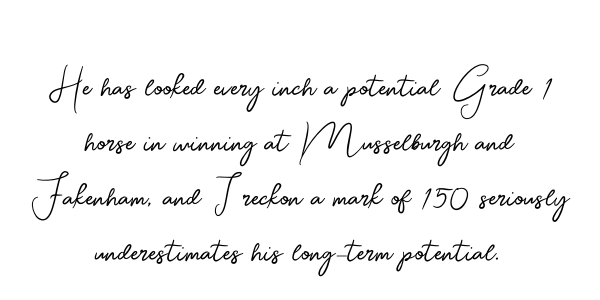 He has looked every inch a potential Grade 1
horse in winning at Musselburgh and
Fakenham, and I reckon a mark of 150 seriously
underestimates his long-term potential.